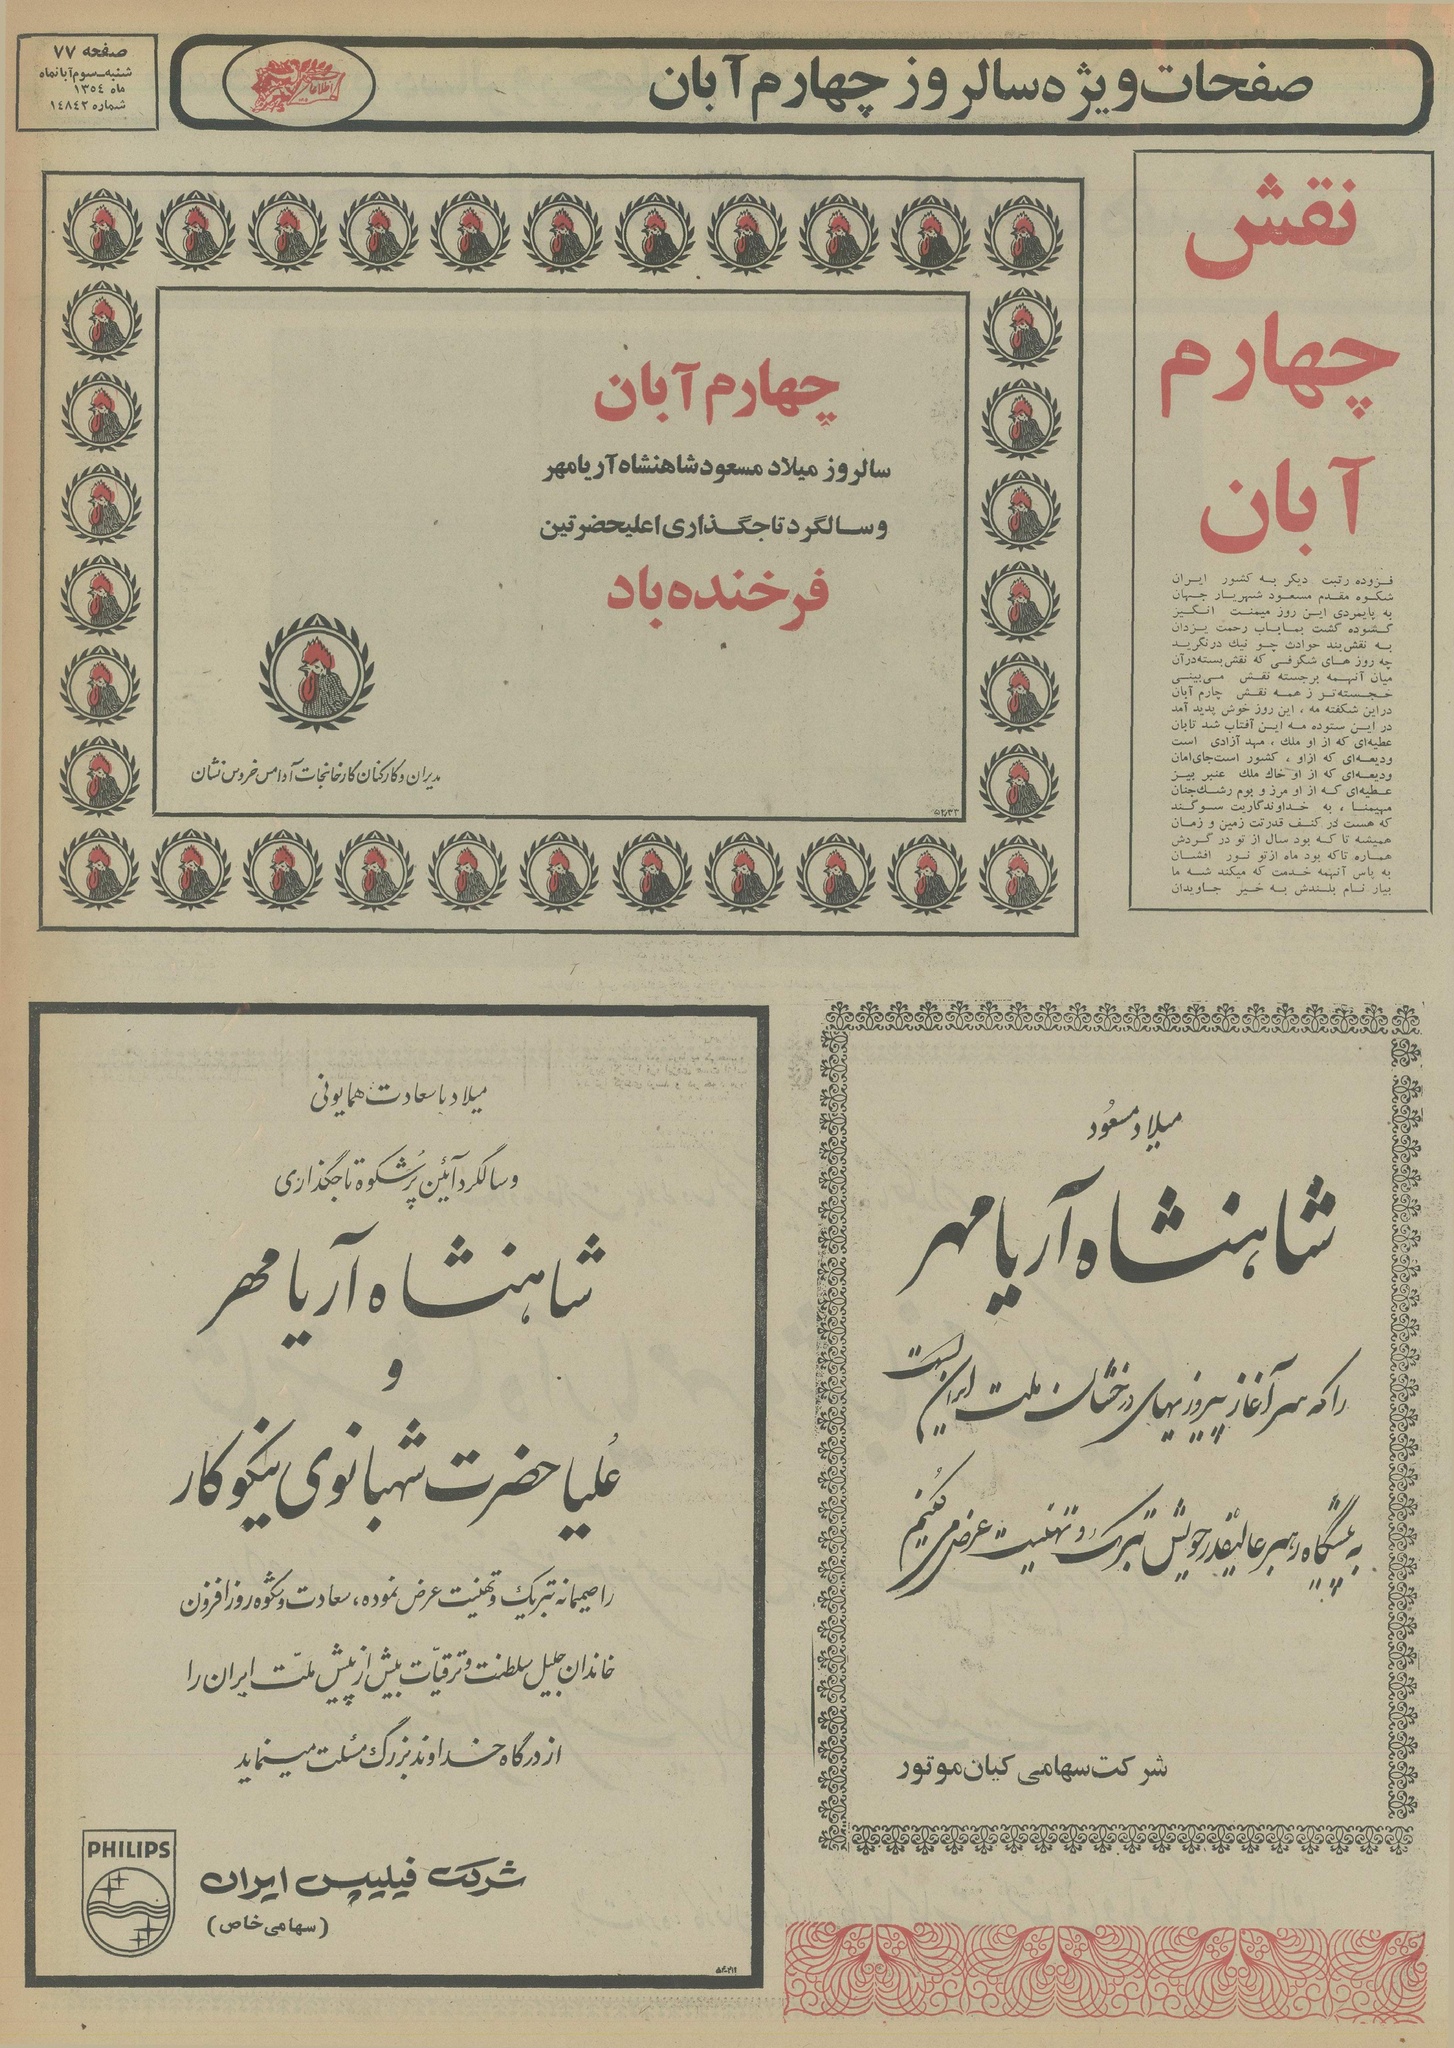 صفحات ویژه سالروز چهارم آبان
اطلاعات
صفحه ۷۷
شنبه-سوم آبانماه
ماه ۱۳٥٤
شماره ۱٤۸٤۲
نقش
چهارم
آبان
فزوده رتبت دیگر به کشور ایران
شکوه مقدم مسعود شهریار جهان
به پایمردی این روز میمنت انگیز
گشوده گشت بما باب رحمت یزدان
به نقش‌بند حوادث چو نیك درنگرید
چه روز های شگرفی که نقش بسته درآن
میان آنهمه برجسته نقش می‌بینی
خجسته‌تر ز همه نقش چارم آبان
دراین شکفته مه ، این روز خوش پدید آمد
در این ستوده مه این آفتاب شد تابان
عطیه‌ای که از او ملك ، مهد آزادی است
ودیعه‌ای که ازاو ، کشور است‌جای‌امان
ودیعه‌ای که از او خاك ملك عنبر بیز
عطیه‌ای که از او مرز و بوم رشك‌جنان
مهیمنا ، به خداوندگاریت سوگند
که هست در کنف قدرتت زمین و زمان
همیشه تا که بود سال از تو در گردش
هماره تاکه بود ماه ازتو نور افشان
به پاس آنهمه خدمت که میکند شه ما
بیار نام بلندش به خیر جاویدان
چهارم آبان
سالروز میلاد مسعود شاهنشاه آریامهر
وسالگرد تاجگذاری اعلیحضرتین
فرخنده باد
مدیران و کارکنان کارخانجات آدامس خروس نشان
میلاد مسعُود
شاهنشاه آریامهر
را که سرآغاز پیروزیهای درخشان ملت ایران است
به پیشگاه رهبر عالیقدر خویش تبریک و تهنیت عرض می کنیم
شرکت سهامی کیان موتور
میلاد با سعادت همایونی
و سالگرد آئین پُرشکوه تاجگذاری
شاهنشاه آریامهر
و
عُلیاحضرت شهبانوی نیکوکار
را صمیمانه تبریک و تهنیت عرض نموده، سعادت و شکوه روزافزون
خاندان جلیل سلطنت و ترقیّات بیش از پیش ملّت ایران را
از درگاه خداوند بزرگ مسئلت مینماید
PHILIPS
شرکت فیلیپس ایران
(سهامی خاص)